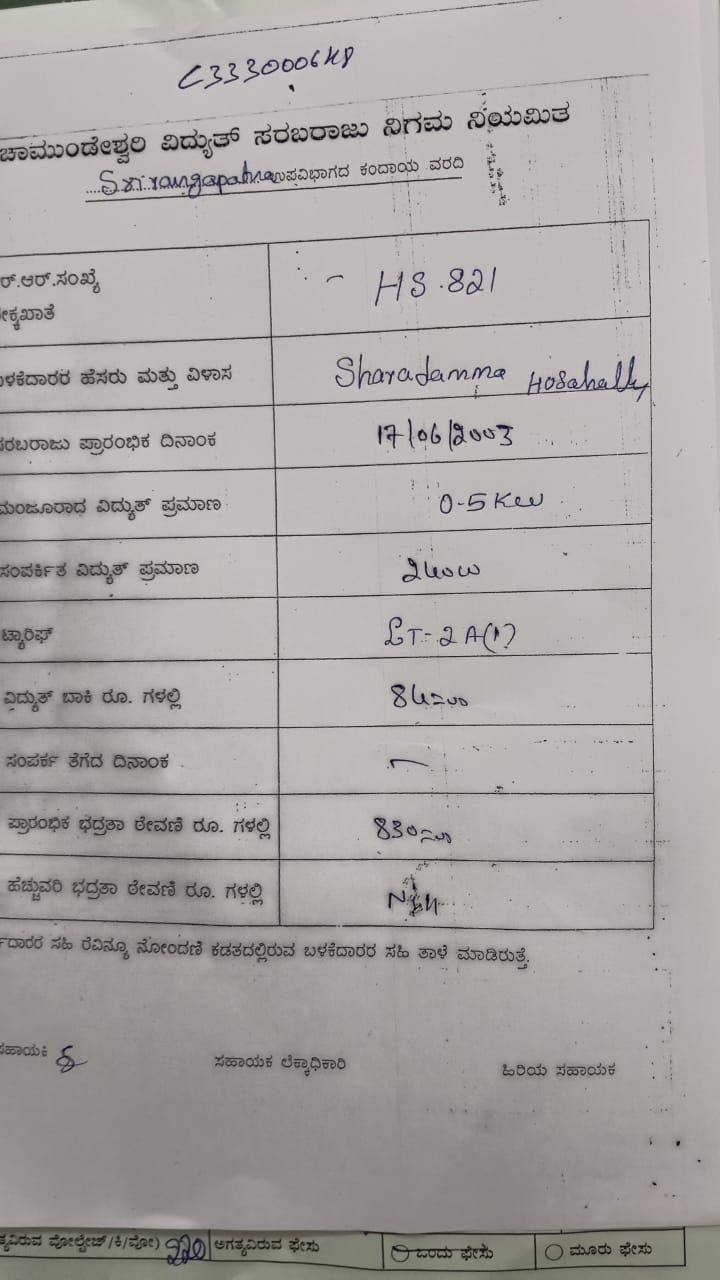 C333000648
ಚಾಮುಂಡೇಶ್ವರಿ ವಿದ್ಯುತ್ ಸರಬರಾಜು ನಿಗಮ ನಿಯಮಿತ
ಉಪವಿಭಾಗದ ಕಂದಾಯ ವರದಿ
ರ್.ಆರ್.ಸಂಖ್ಯೆ HS.821
ಳಕೆದಾರರ ಹೆಸರು ಮತ್ತು ವಿಳಾಸ Sharadamma Hosahally
ಸರಬರಾಜು ಪ್ರಾರಂಭಿಕ ದಿನಾಂಕ 17/06/2003
ಮಂಜೂರಾದ ವಿದ್ಯುತ್ ಪ್ರಮಾಣ 0-5 KW
ಸಂಪರ್ಕಿತ ವಿದ್ಯುತ್ ಪ್ರಮಾಣ 240W
ಟ್ಯಾರಿಫ್ LT-2A(1)
ವಿದ್ಯುತ್ ಬಾಕಿ ರೂ. ಗಳಲ್ಲಿ 84=00
ಸಂಪರ್ಕ ತೆಗೆದ ದಿನಾಂಕ -
ಪ್ರಾರಂಭಿಕ ಭದ್ರತಾ ಠೇವಣಿ ರೂ. ಗಳಲ್ಲಿ 830=00
ಹೆಚ್ಚುವರಿ ಭದ್ರತಾ ಠೇವಣಿ ರೂ. ಗಳಲ್ಲಿ
ದಾರರ ಸಹಿ ರೆವಿನ್ಯೂ ನೋಂದಣಿ ಕಡತದಲ್ಲಿರುವ ಬಳಕೆದಾರರ ಸಹಿ ತಾಳೆ ಮಾಡಿರುತ್ತೆ.
ಸಹಾಯಕಿ ಸಹಾಯಕ ಲೆಕ್ಕಾಧಿಕಾರಿ ಹಿರಿಯ ಸಹಾಯಕ
ತ್ಯವಿರುವ ವೋಲ್ಟೇಜ್/ಕಿ/ವೋ) 220 ಅಗತ್ಯವಿರುವ ಫೇಸು ಒಂದು ಫೇಸು ಮೂರು ಫೇಸು